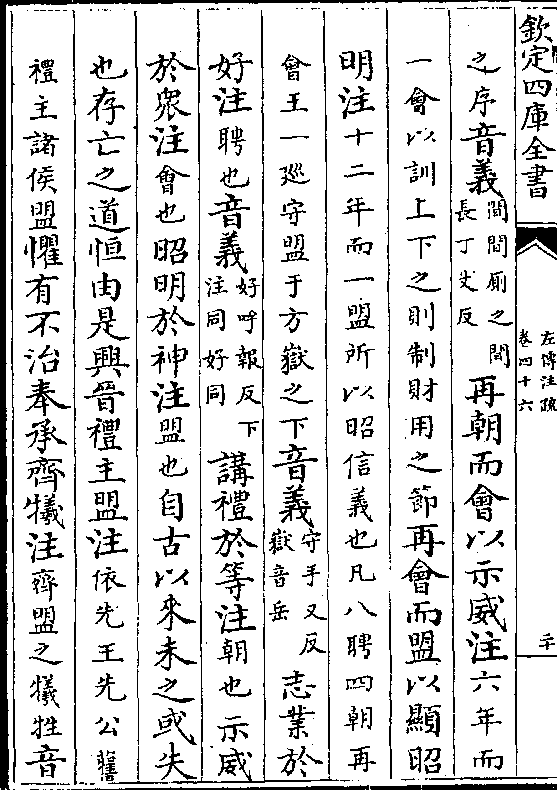 欽定四庫全書
左傳注疏
卷四十六
二十
之序音義間間厠之間
長丁丈反再朝而會以示威注六年而
一會以訓上下之則制財用之節再會而盟以顯昭
明注十二年而一盟所以昭信義也凡八聘四朝再
會王一廵守盟于方嶽之下音義守手又反
嶽音岳志業於
好注聘也音義好呼報反下
注同好同講禮於等注朝也示威
於衆注會也昭明於神注盟也自古以來未之或失
也存亡之道恒由是興晉禮主盟注依先王先公舊
禮主諸侯盟懼有不治奉承齊犧注齊盟之犧牲音